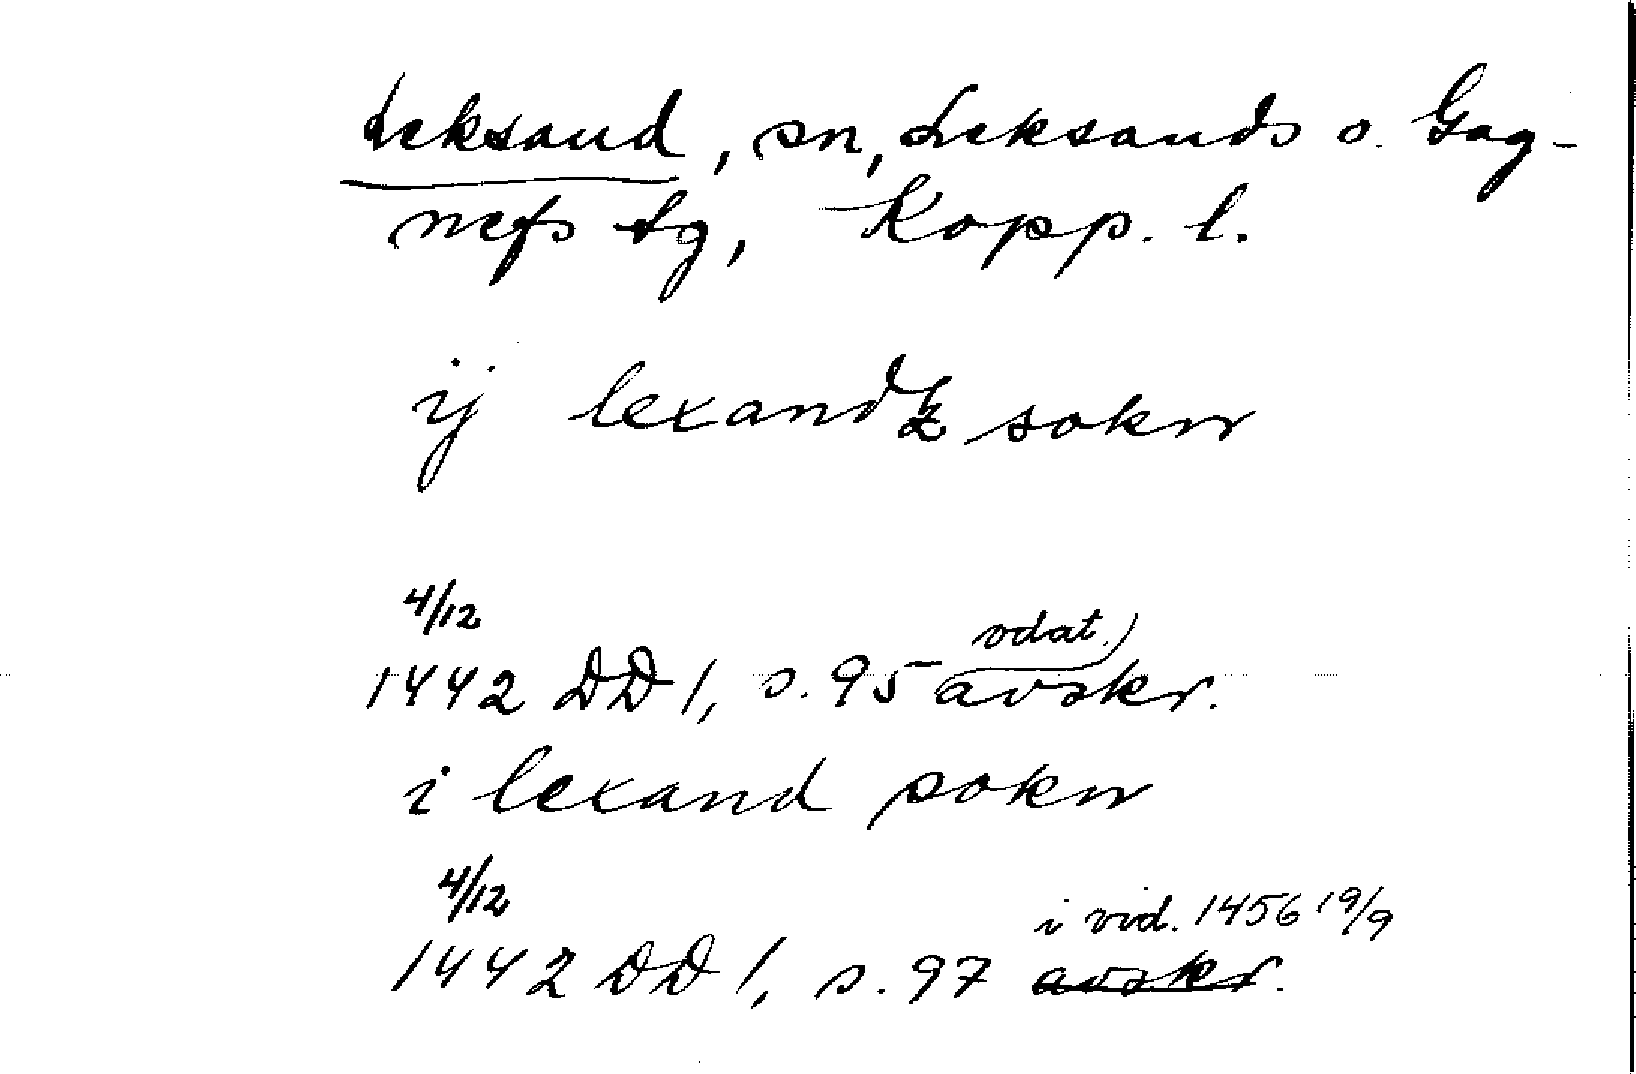 Leksand, sn, Leksands o. Gag-
nefs tg, Kopp. l.
ij lexandtz sokn
4/12
odat.)
1442 DD 1, s. 95 avskr.
i lexand sokn
4/12
i vid. 1456 19/9
1442 DD 1, s. 97 avskr.